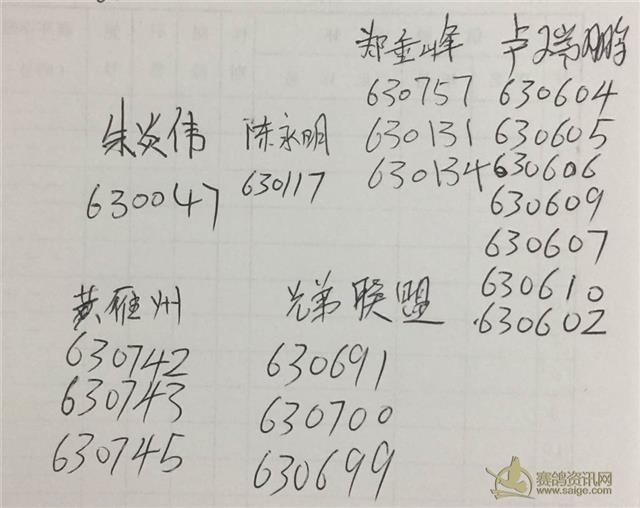 朱炎伟
630047
陈永明
630117
郑重峰
630757
630131
630134
卢瑞鹏
630604
630605
630606
630609
630607
630610
630602
黄雁州
630742
630743
630745
兄弟联盟
630691
630700
630699
赛鸽资讯网
www.saige.com